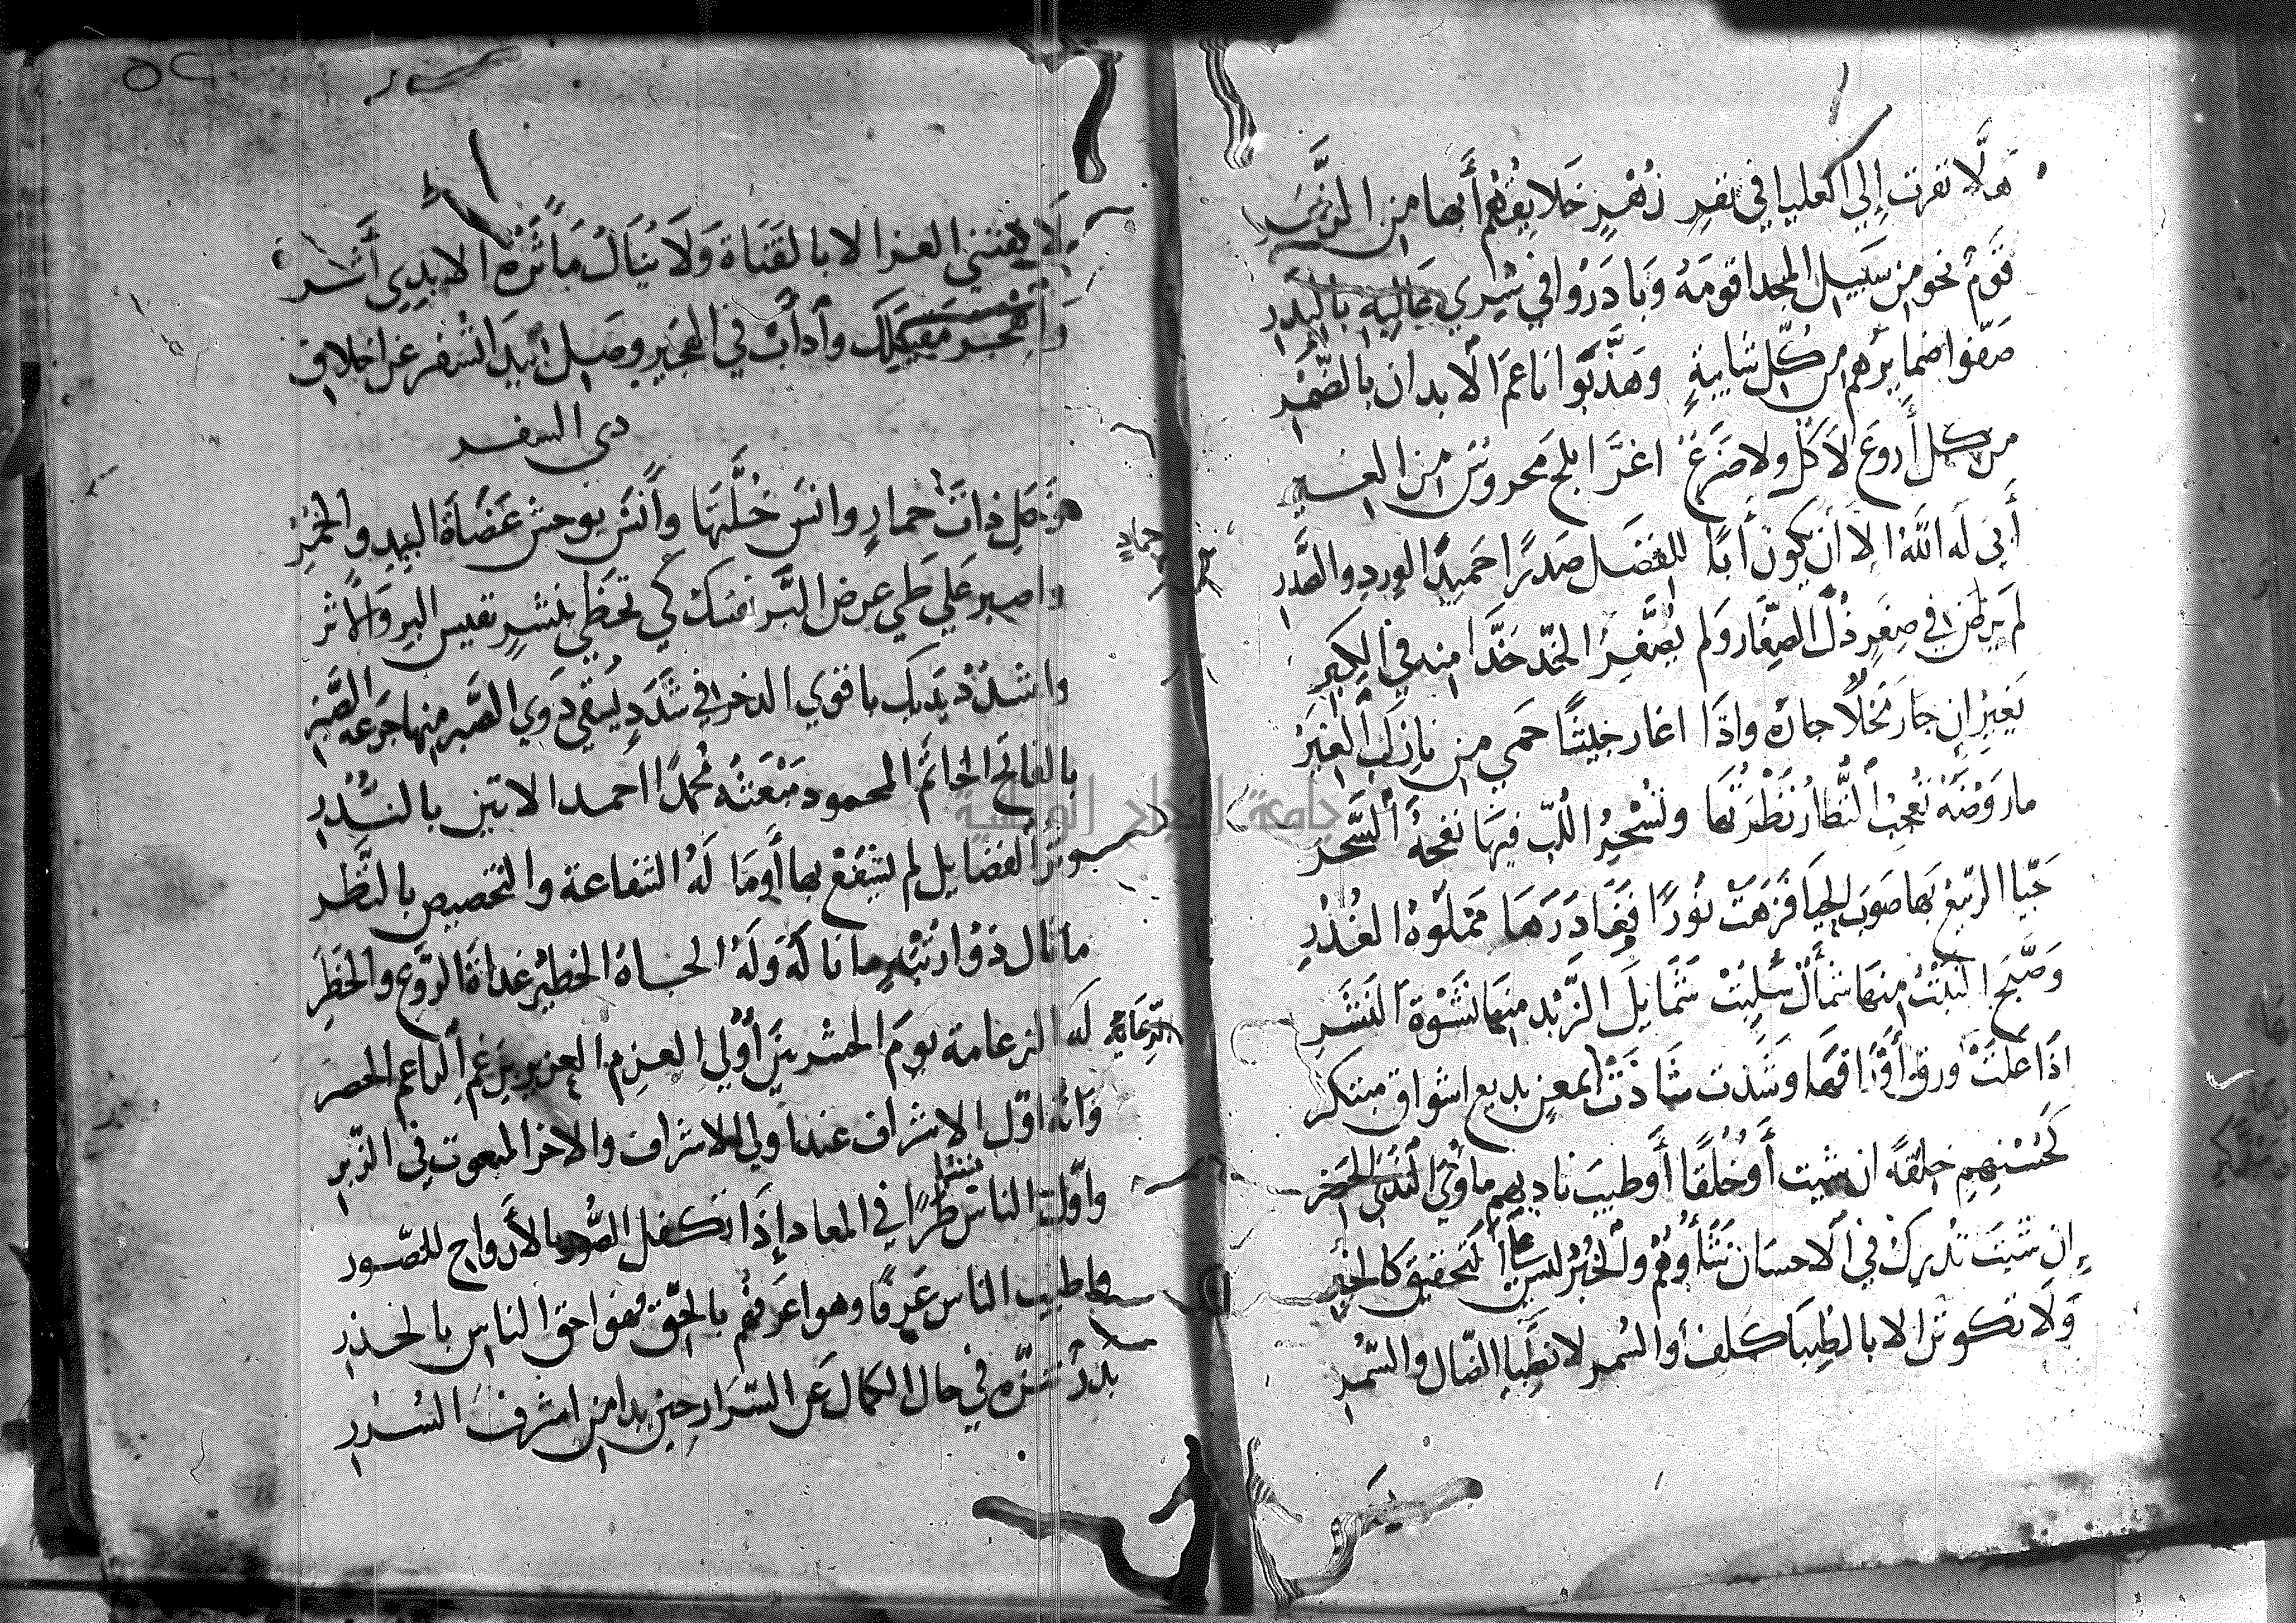 هَلَّا نفرت إلى العليا في نفرٍ زُهْرٍ خَلايقُهُم أبها من الزَّهَر
قَوْمٌ نحو من سَبيل المجد اقومَهُ وَبَادَرُوا في شرى عَالِيهِ بالبدر
صَفّوا ضمايرهم من كلّ شايبةٍ وَهَذَّبُوا ناعمَ الأبدان بالضُّمْر
من كل أروَعَ لَا كَلّ ولا ضَرَعٌ اغرَّ ابلج محروس من الغير
أبى لَه اللَّهُ الا أن يكون أبًا للفضل صَدرًا حَميدَ الوِرد والصَّدر
لم يرض في صِغَرٍ ذُلَّ الصِّغَار وَلم يُصَغِّر الخدّ خَدًّا منه في الكِبَرِ
يَغير ان جار مَحْلًا جارَهُ واذَا اغار خِلتًا حَمي من نازل الغِيَرْ
ما رَوْضَة تُعجِبُ النُّظار نَظْرَتُها وتُسْحِرُ اللبّ فيها نفحةُ السَّحَر
حَيّا الربيع بها صَوبَ الحيا فَزَهَتْ نَورًا فَغَادَرَهَا مَمْلُوّة الغُدُر
وَصَبَّحَ النبتُ منها شمأل سَلبَتْ شَمَايل الرَّند منها نَشْوَة النَشَر
اذَا عَلَتْ وُرقُ أوْراقها وشَدَت شَادَتْ لِمعنٍ بديع اشواق مبتكر
كَحُسْنِهِم خِلقةً ان شيت أَو خُلُقًا أو طيبَ ناديهم ما وفى النَّدَى الحَضِر
إن شيت تُدرك في الاحسان شَأْوَهُم والخُبْرُ ليس على التحقيق كالخبر
وَلَا تكونن الا بالظِبَا كَلفًا والسُمر لا بظِبا الضّال والسَّمُر
٥٢
لَا يُقتنى العز الا بالقَنَاة وَلَا يُنَالُ مَأثَرَةٌ الا بِذِي أَثَر
وَاهْجُر مَقيلَكَ وأدأبْ في الهجير وصَل بيدَ السَفر عن اخلاق
ذي السفر
وَخَلِ ذاتَ خمارٍ وانسَ خُلَّتَهَا وأنَس بوحش عَضَاةَ البيدِ والخَمَرِ
واصبر عَلى طَي عرض البَرّ نفسَك كي تَحظَى بنشرٍ نفيس البر والأثر
واشدُدْ يَدَيكَ باقوى الذخر في شَدَدٍ يَسقى ذَوي الصَّبر منها جَرعة الصَّبِرِ
بالفاتح الخاتَم المحمود مَبْعَثُه مُحمدًا احمد الاتين بالنُّذُر
الفضايل لم يشفع بها أَو مَا لَهُ الشفاعة والتخصيص بالنَّظر
ما نال ذُوا رُتَبٍ ما نالَهُ وَلَهُ الجاهُ الخطيرُ غداةَ الرَّوْع والخَطَرِ
لَه الزعامة يومَ الحشر بَيْنَ أُولى العزم العزيز برَغم الباغم الحصر
الزّعَامَة
وَانَّه اوّل الاشراف عند اولي الاشراف والاخر المبعوث في الزُّبرِ
وَاوّل الناس طُرًّا في المعاد إذَا تكفل الصُّور بالأرواح للصُّور
واطيب الناس عَرفًا وهو اعرَفُهُم بالحَقّ فهو احق الناس بالحذر
بدرٌ تنَزّه في حال الكمال عَن السّرَار حين بدا من اشرف السُرُر
حمارٍ
جامعة النجاح الوطنية